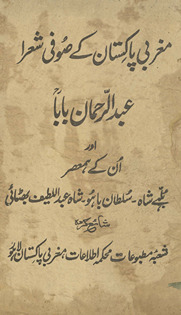 مغربی پاکستان کے صوفی شعرا
عبدالرّحمان باباؒ
اور
اُن کے ہمعصر
بلّھے شاہ - سُلطان باہُو - شاہ عبداللطیف بھٹائی
شائع کردہ
شعبۂ مطبوعات محکمہ اطلاعات مغربی پاکستان لاہور